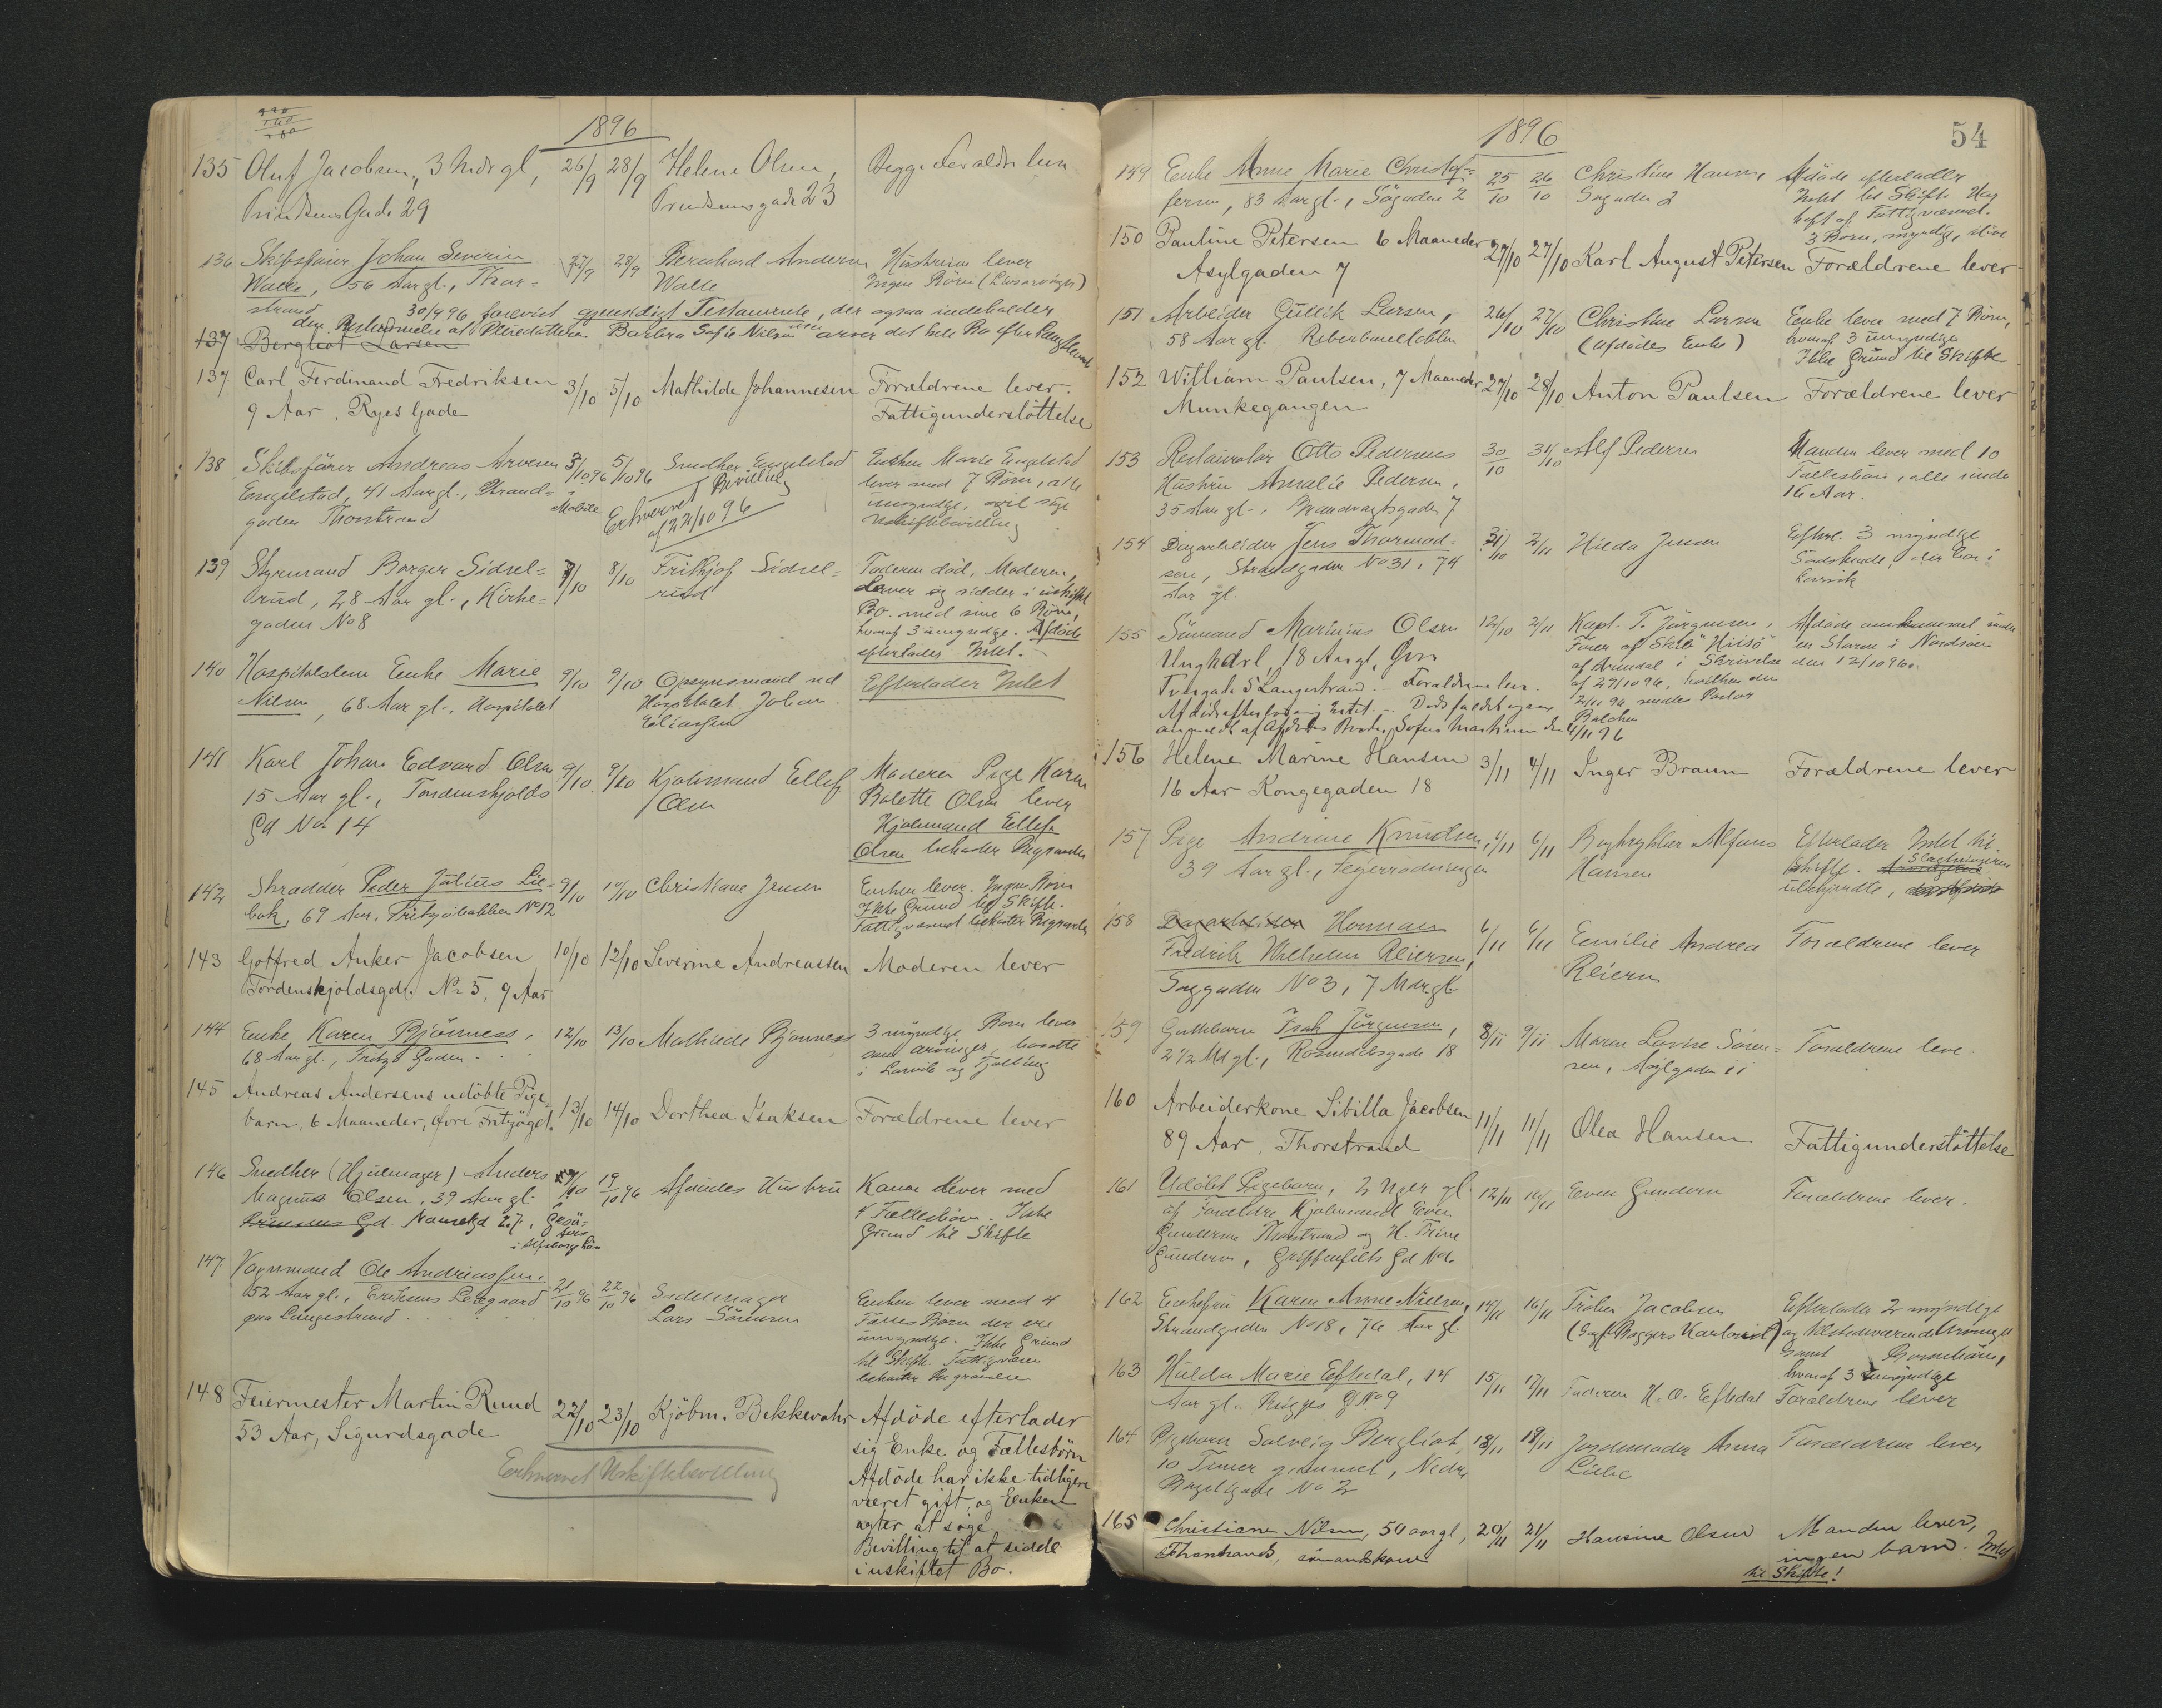 1896
135 Oluf Jacobsen, 3 Mdr gl, 26/9 28/9 Helene Olsen, Begge Foraldre lever
Prindsens Gade 29 Prindsensgade 23
136 Skibsfører Johan Severin 27/9 28/9 Bernhard Andersen Hustruen lever
Walle, 56 Aar gl., Thor= Walle Ingen Börn (Livsarvinger)
strand 30/9 96 forevist gjensidigt Testamente, der ogsaa indeholder
den Bestemmelse at Pleiedatteren Barbra Sofie Nilsen arver det hele Bo efter Længstlevende
137 Bergliot Larsen
137 Carl Ferdinand Fredriksen 3/10 5/10 Mathilde Johannesen Forældrene lever.
9 Aar, Ryes Gade Fattigunderstöttelse
138 Skibsförer Andreas Arvesen 3/10 96 5/10 96 Snedker Engelstad Enken Marie Engelstad
Engelstad, 41 Aar gl., Strand= Mobile Erhvervet Bevilling lever med 7 Börn, alle
gaden Thorstrand af 22/10 96 umyndige, agt søge
Uskiftebevilling
139 Styrmand Borger Sidsel= 7/10 8/10 Frithjof Sidsel= Faderen död, Moderen
rud, 28 Aar gl., Kirke= rud Lever og sidder i uskiftet
gaden No 8 Bo. med sine 6 Börn,
hvoraf 3 umyndge. Afdöde
efterlader Intet.
140 Hospitalslem Enke Marie 9/10 9/10 Opsynsmand ved Efterlader Intet
Nilsen, 68 Aar gl., Hospitalet Hospitalet Johan
Eliassen
141 Karl Johan Edvard Olsen 9/10 9/10 Kjolmand Ellef Moderen Pige Karen
15 Aar gl., Tordenskjolds Olsen Bolette Olsen lever
Gd No 14 Kjolmand Ellef
Olsen bekoster Begravelsen
142 Skrædder Peder Julius Lie= 9/10 10/10 Christiane Jensen Enken lever. Ingen Börn
bak, 69 Aar, Fritzöbakken No 12 Ikke Grund til Skifte.
Fattigvæsenet bekoster Begravelsen
143 Gotfred Anker Jacobsen 10/10 12/10 Severine Andreassen Moderen lever
Tordenskjoldsgd. No 5, 9 Aar
144 Enke Karen Bjönness, 12/10 13/10 Mathilde Bjönness 3 myndige Börn lever
68 Aar gl., Fritzö Gaden som arvinger, bosatte
i Larvik og Tjølling
145 Andreas Andersens udöbte Pige= 13/10 14/10 Dorthea Isaksen Forældrene lever
barn, 6 Maaneder, Øvre Fritzögd.
146 Snedker (Hjulmager) Anders 17/10 19/10 96 Afdödes Hustru Konen lever med
Magnus Olsen, 39 Aar gl. 4 Fællesbörn. Ikke
Gd. Nansetgd 27, Grund til Skifte
147 Vognmand Ole Andreassen, 21/10 96 22/10 96 Sadelmager Enken lever med 4
52 Aar gl., Eriksens Leiegaard Lars Sörensen Fælles Börn der ere
paa Langestrand umyndige. Ikke Grund
til Skifte. Fattigvæsen
bekoster Begravelse
148 Feiermester Martin Ruud 22/10 23/10 Kjöbm. Bekkevahr Afdöde efterlader
53 Aar, Sigurdsgade sig Enke og Fællesbörn
Erhvervet Uskiftebevilling Afdöde har ikke tidligere
været gift, og Enken
agter at söge
Bevilling til at sidde
i uskiftet Bo.
1896 54
149 Enke Anne Marie Christof= 25/10 26/10 Christine Hansen Afdöde efterlader
fersen, 83 Aar gl., Søgaden 2 Søgaden 2 Intet til Skifte. Har
haft af Fattigvæsenet.
3 Börn, myndige,
150 Pauline Petersen 6 Maaneder 27/10 27/10 Karl August Petersen Forældrene lever
Asylgaden 7
151 Arbeider Gullik Larsen, 26/10 27/10 Christine Larsen Enke lever med 7 Börn,
58 Aar gl. (Afdödes Enke) hvoraf 3 umyndige
Ikke Grund til Skifte
152 William Paulsen, 7 Maaneder 27/10 28/10 Anton Paulsen Forældrene lever
Munkegangen
153 Restauratør Otto Pedersens 30/10 31/10 Alf Pedersen Manden lever med 10
Hustru Amalie Pedersen, Fællesbörn, alle under
35 Aar gl., Brandvagtsgaden 7 16 Aar.
154 Dagarbeider Jens Thormod= 31/10 2/11 Hilda Jensen Efterl. 3 myndige
sen, Strandgaden No 31, 74 Sødskende, der bor i
Aar gl. Larvik
155 Sømand Marinius Olsen 12/10 2/11 Kapt. T. Jørgensen, Afdöde omkommet under
Ungkarl, 18 Aar gl. Övre Förer af Skib Hisö en Storm i Nordsöen
Tvergade 5 Langestrand. Foraldrene lever. af Arendal i Skrivelse den 12/10 96.
Afdöde efterlod sig Intet. Dödsfaldet ogsaa af 27/10 96, hvilken den
anmeldt af Afdödes Broder, Sofus Martinsen den 4/11 96 2/11 96 sendtes Pastor
Balchen
156 Helene Marine Hansen 3/11 4/11 Inger Braun Forældrene lever
16 Aar Kongegaden 18
157 Pige Andrine Knudsen, 6/11 6/11 Brygbrygger Alfons Efterlader Intet til
39 Aar gl., Hansen Skifte. Slægtningerne
ubekjendte,
158 Dagarbeider Herman 6/11 6/11 Emilie Andrea Foraldrene lever
Fredrik Wilhelm Reiersen, Reiersen
Saggaden No 3, 7 Mdr. gl.
159 Guttebarn Isak Jörgensen, 8/11 9/11 Maren Lovise Sören= Foraldrene leve.
2 1/2 Md gl., Rosendalsgade 18 sen, Asylgaden 11
160 Arbeiderkone Sibilla Jacobsen 11/11 11/11 Olea Hansen Fattigunderstöttelse
89 Aar, Thorstrand
161 Udöbt Pigebarn, 2 Uger gl. 12/11 Even Gundersen Forældrene lever.
af Forældre Kjolmand Even
Gundersen Thorstrand og H. Trine
Gundersen, Griffenfelts Gd No
162 Enkefru Karen Anne Nielsen, 14/11 16/11 Fröken Jacobsen Efterlader 2 myndige
Strandgaden No 18, 76 Aar gl. og tilstedeværende Arvinger
samt Börnebörn,
hvoraf 3 umyndige
163 Hulda Marie Eftedal, 14 15/11 17/11 Faderen H. O. Eftedal Forældrene lever
Aar gl. No 9
164 Pigebarn Solveig Bergliot, 18/11 18/11 Jordemoder Anna Forældrene lever
10 Timer gammel, Nedre Lilleb
No 2
165 Christiane Nilsen, 50 aar gl, 20/11 21/11 Hansine Olsen Manden lever,
Thorstrand, sömandskone ingen barn. Intet
til Skifte!